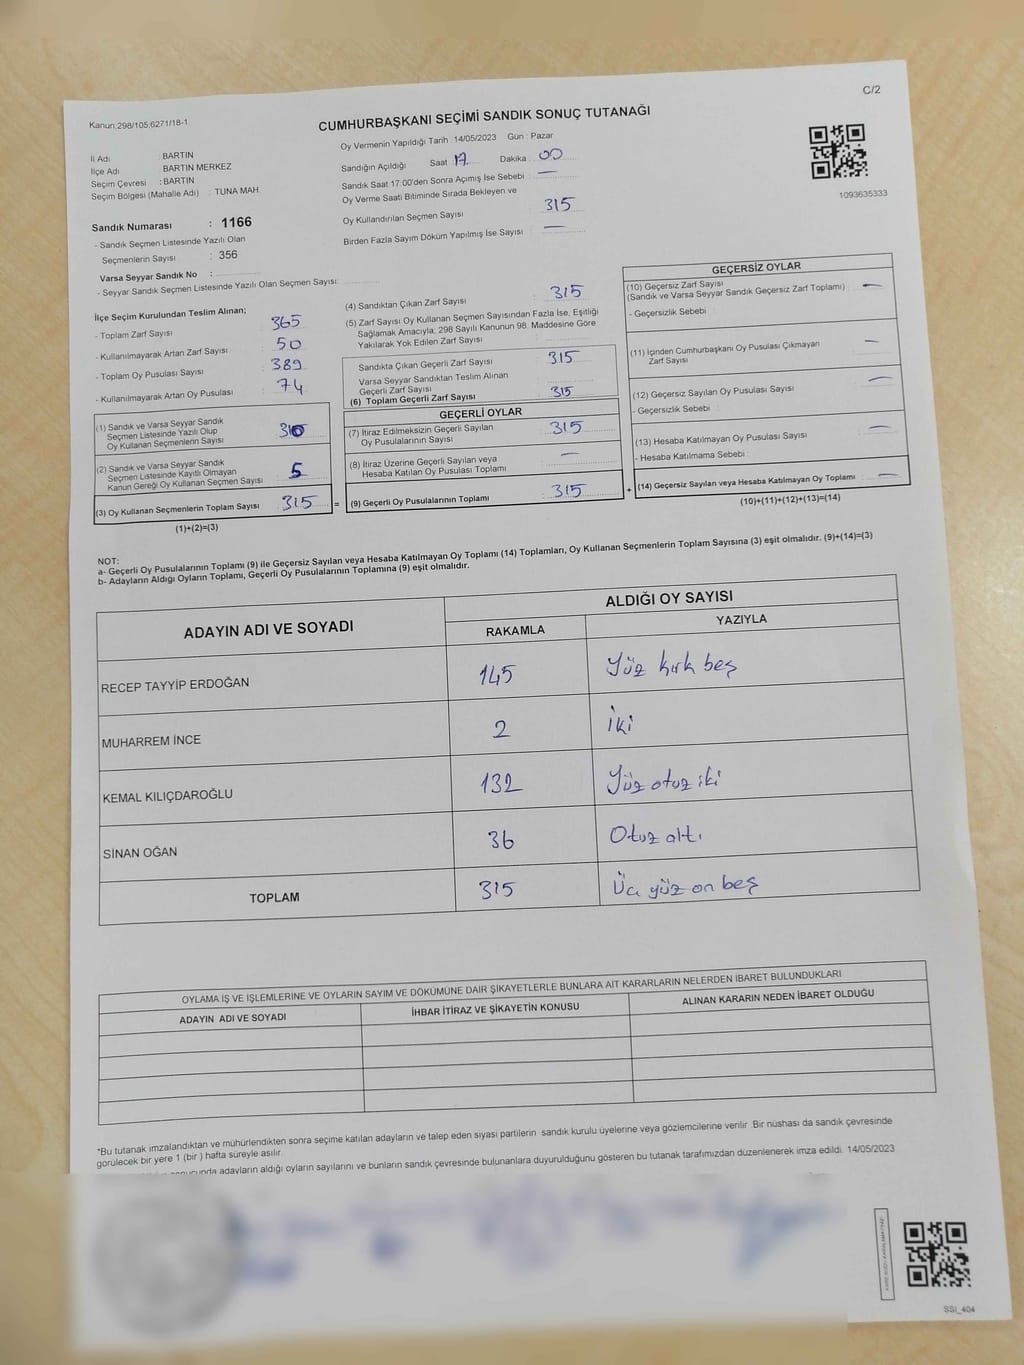 C/2
Kanun:298/105,6271/18-1
CUMHURBAŞKANI SEÇİMİ SANDIK SONUÇ TUTANAĞI
İl Adı : BARTIN
İlçe Adı BARTIN MERKEZ
Seçim Çevresi : BARTIN
Seçim Bölgesi (Mahalle Adı) : TUNA MAH.
Oy Vermenin Yapıldığı Tarih : 14/05/2023 Gün : Pazar
Sandığın Açıldığı Saat 17 Dakika 00
Sandık Saat 17:00'den Sonra Açımış İse Sebebi : —
Oy Verme Saati Bitiminde Sırada Bekleyen ve
Oy Kullandırılan Seçmen Sayısı 315
Birden Fazla Sayım Döküm Yapılmış İse Sayısı —
1093635333
Sandık Numarası : 1166
- Sandık Seçmen Listesinde Yazılı Olan
Seçmenlerin Sayısı : 356
Varsa Seyyar Sandık No :
- Seyyar Sandık Seçmen Listesinde Yazılı Olan Seçmen Sayısı:
İlçe Seçim Kurulundan Teslim Alınan;
- Toplam Zarf Sayısı 365
- Kullanılmayarak Artan Zarf Sayısı 50
- Toplam Oy Pusulası Sayısı 389
- Kullanılmayarak Artan Oy Pusulası 74
(1) Sandık ve Varsa Seyyar Sandık
Seçmen Listesinde Yazılı Olup
Oy Kullanan Seçmenlerin Sayısı 310
(2) Sandık ve Varsa Seyyar Sandık
Seçmen Listesinde Kayıtlı Olmayan
Kanun Gereği Oy Kullanan Seçmen Sayısı 5
(3) Oy Kullanan Seçmenlerin Toplam Sayısı 315 =
(1)+(2)=(3)
(4) Sandıktan Çıkan Zarf Sayısı 315
(5) Zarf Sayısı Oy Kullanan Seçmen Sayısından Fazla İse, Eşitliği
Sağlamak Amacıyla; 298 Sayılı Kanunun 98. Maddesine Göre
Yakılarak Yok Edilen Zarf Sayısı
Sandıkta Çıkan Geçerli Zarf Sayısı 315
Varsa Seyyar Sandıktan Teslim Alınan
Geçerli Zarf Sayısı
(6) Toplam Geçerli Zarf Sayısı 315
GEÇERLİ OYLAR
(7) İtiraz Edilmeksizin Geçerli Sayılan
Oy Pusulalarının Sayısı 315
(8) İtiraz Üzerine Geçerli Sayılan veya
Hesaba Katılan Oy Pusulası Toplamı —
(9) Geçerli Oy Pusulalarının Toplamı 315 +
GEÇERSİZ OYLAR
(10) Geçersiz Zarf Sayısı
(Sandık ve Varsa Seyyar Sandık Geçersiz Zarf Toplamı) —
- Geçersizlik Sebebi :
(11) İçinden Cumhurbaşkanı Oy Pusulası Çıkmayan
Zarf Sayısı —
(12) Geçersiz Sayılan Oy Pusulası Sayısı —
- Geçersizlik Sebebi :
(13) Hesaba Katılmayan Oy Pusulası Sayısı —
- Hesaba Katılmama Sebebi :
(14) Geçersiz Sayılan veya Hesaba Katılmayan Oy Toplamı —
(10)+(11)+(12)+(13)=(14)
NOT:
a- Geçerli Oy Pusulalarının Toplamı (9) ile Geçersiz Sayılan veya Hesaba Katılmayan Oy Toplamı (14) Toplamları, Oy Kullanan Seçmenlerin Toplam Sayısına (3) eşit olmalıdır. (9)+(14)=(3)
b- Adayların Aldığı Oyların Toplamı, Geçerli Oy Pusulalarının Toplamına (9) eşit olmalıdır.
ADAYIN ADI VE SOYADI ALDIĞI OY SAYISI
RAKAMLA YAZIYLA
RECEP TAYYİP ERDOĞAN 145 Yüz kırk beş
MUHARREM İNCE 2 İki
KEMAL KILIÇDAROĞLU 132 Yüz otuz iki
SİNAN OĞAN 36 Otuz altı
TOPLAM 315 Üç yüz on beş
OYLAMA İŞ VE İŞLEMLERİNE VE OYLARIN SAYIM VE DÖKÜMÜNE DAİR ŞİKAYETLERLE BUNLARA AİT KARARLARIN NELERDEN İBARET BULUNDUKLARI
ADAYIN ADI VE SOYADI İHBAR İTİRAZ VE ŞİKAYETİN KONUSU ALINAN KARARIN NEDEN İBARET OLDUĞU
*Bu tutanak imzalandıktan ve mühürlendikten sonra seçime katılan adayların ve talep eden siyasi partilerin sandık kurulu üyelerine veya gözlemcilerine verilir. Bir nüshası da sandık çevresinde
görülecek bir yere 1 (bir) hafta süreyle asılır.
adayların aldığı oyların sayılarını ve bunların sandık çevresinde bulunanlara duyurulduğunu gösteren bu tutanak tarafımızdan düzenlenerek imza edildi. 14/05/2023
SSI_404